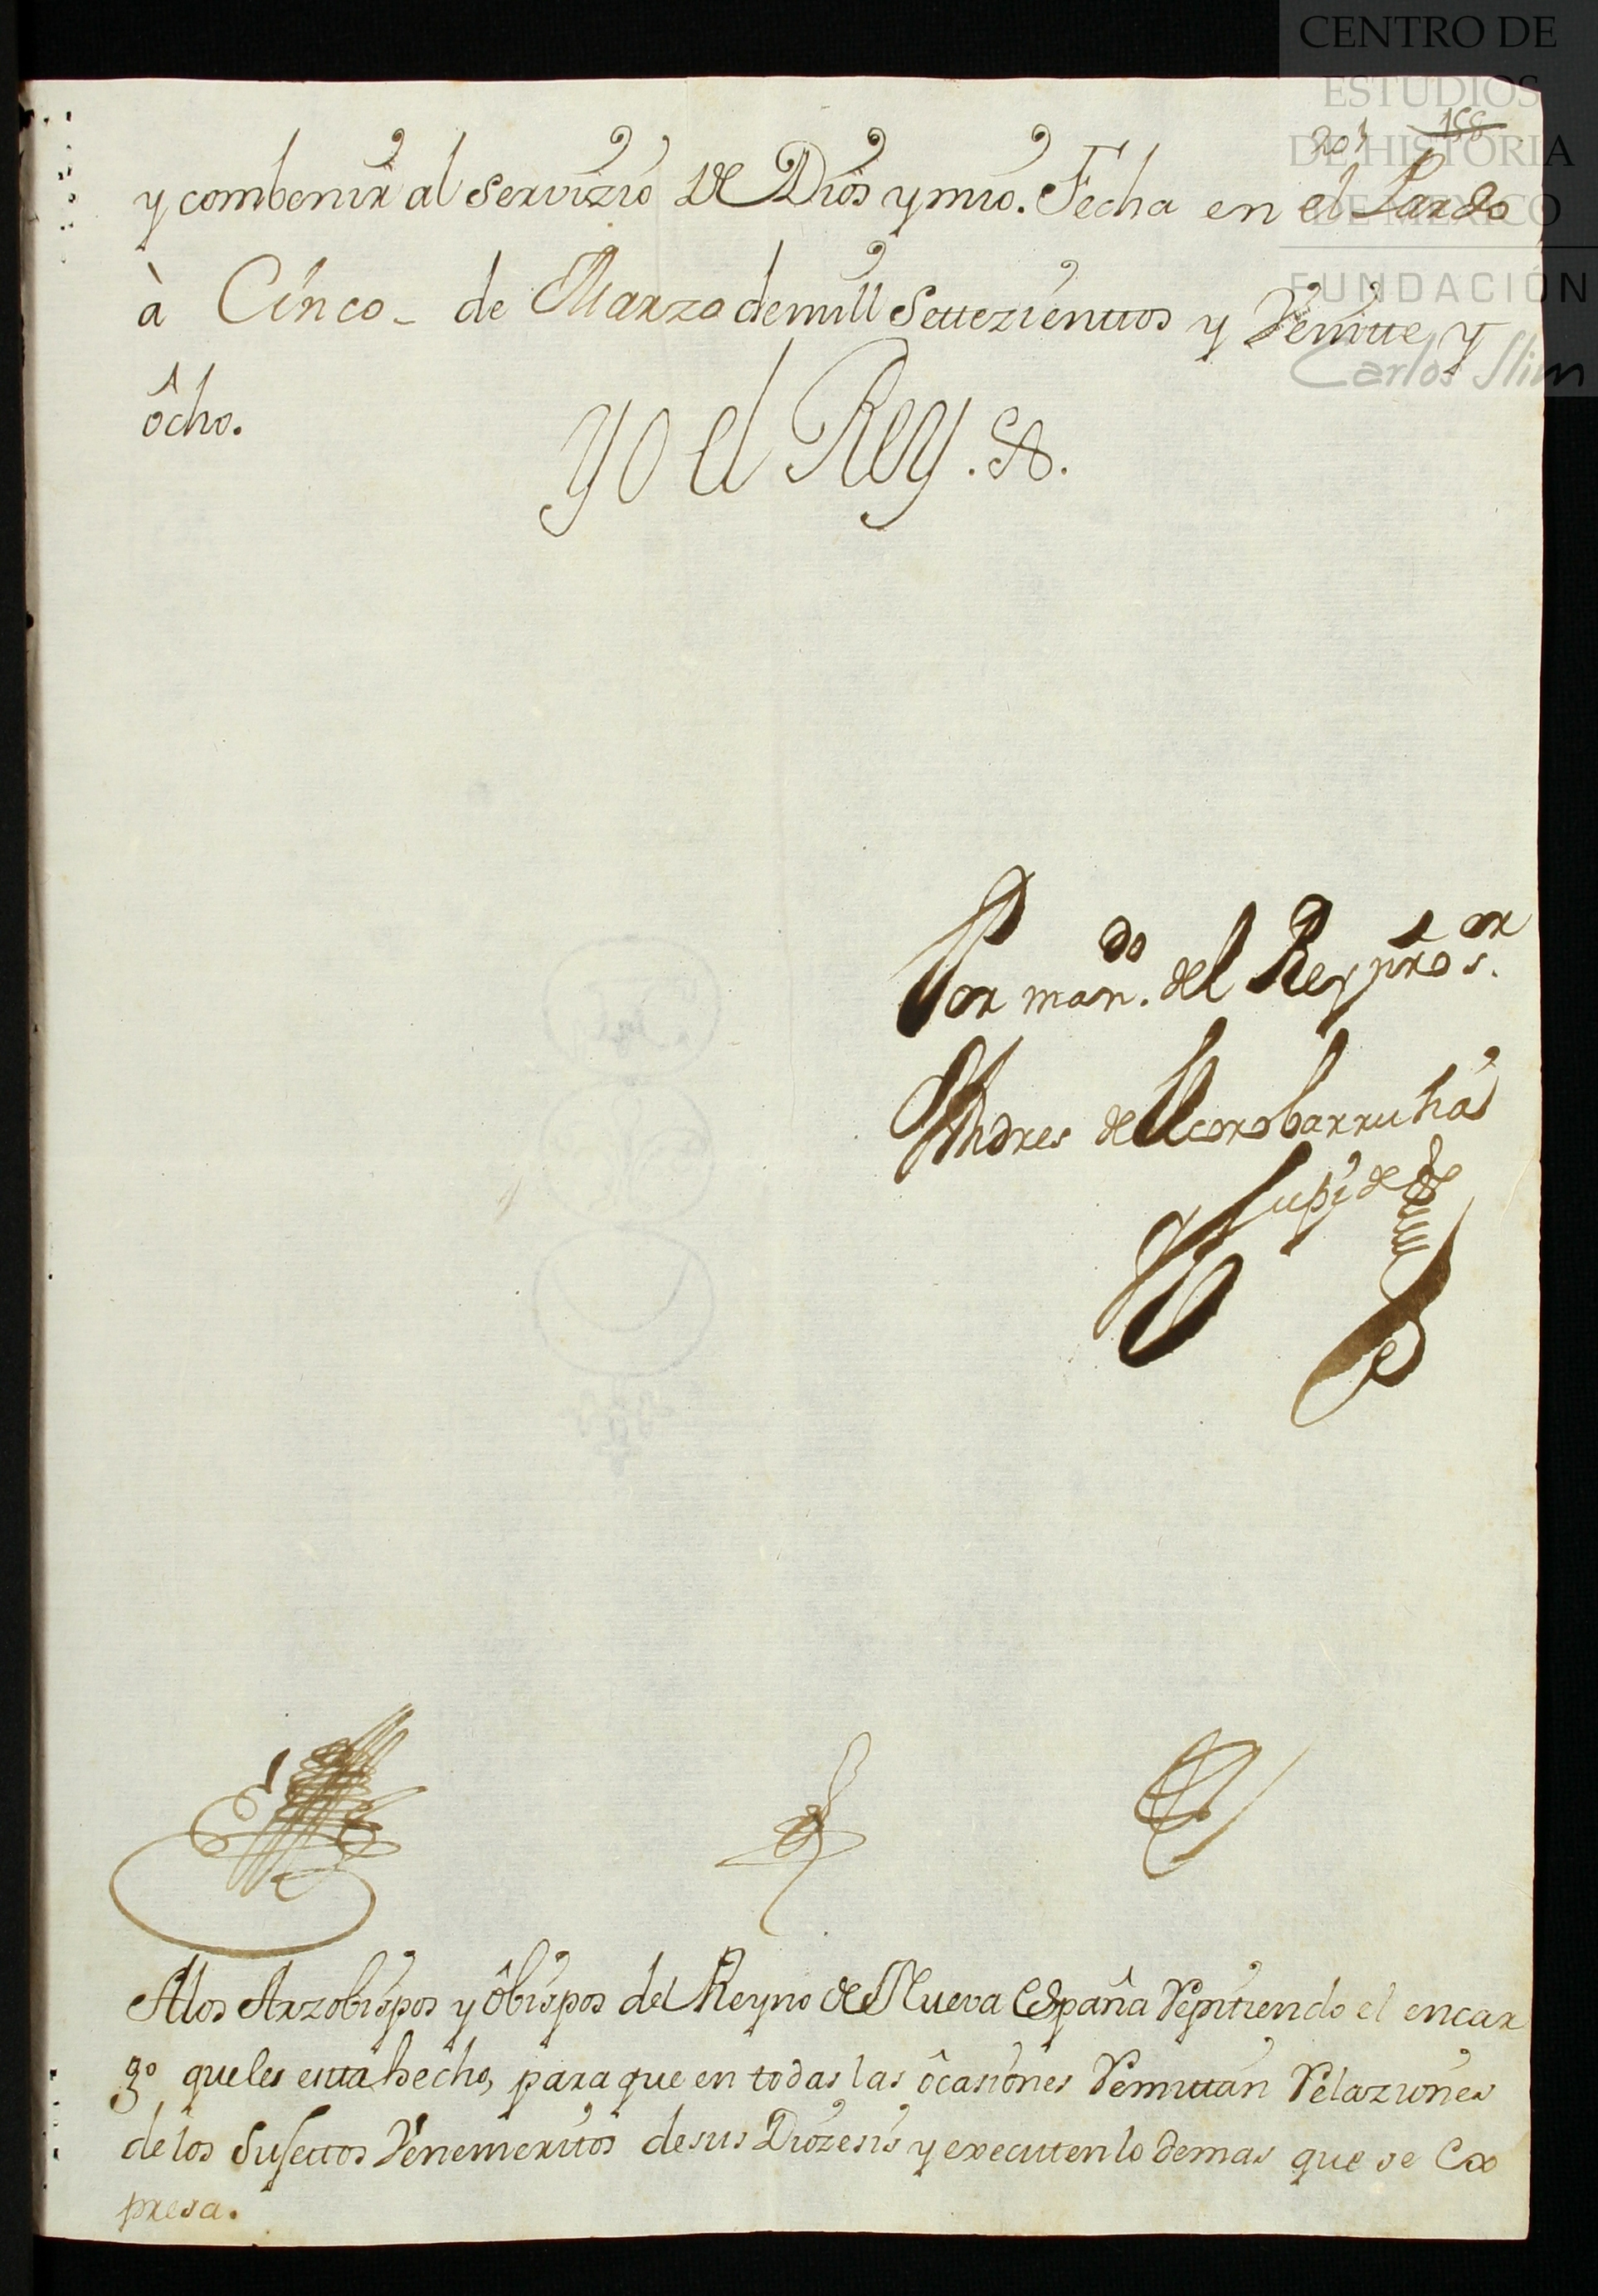 CENTRO DE
ESTUDIOS
DE HISTORIA
DE MÉXICO
FUNDACIÓN
Carlos Slim
158
y combenir al servizio de Dios y mio. Fecha en el Pardo
à Cinco - de Marzo de mill settezienttos y Veintte y
ôcho.
Yo el Rey.
Por man.do del Rey nro s.or
Andres de Elcorobarrutia
y Zupide
A los Arzobispos y ôbispos del Reyno de Nueva España repitiendo el encar
go que les estta hecho, para que en todas las ôcasiones remittan relaziones
de los sujettos venemeritos de sus Diozesis y executen lo demas que se ex
presa.